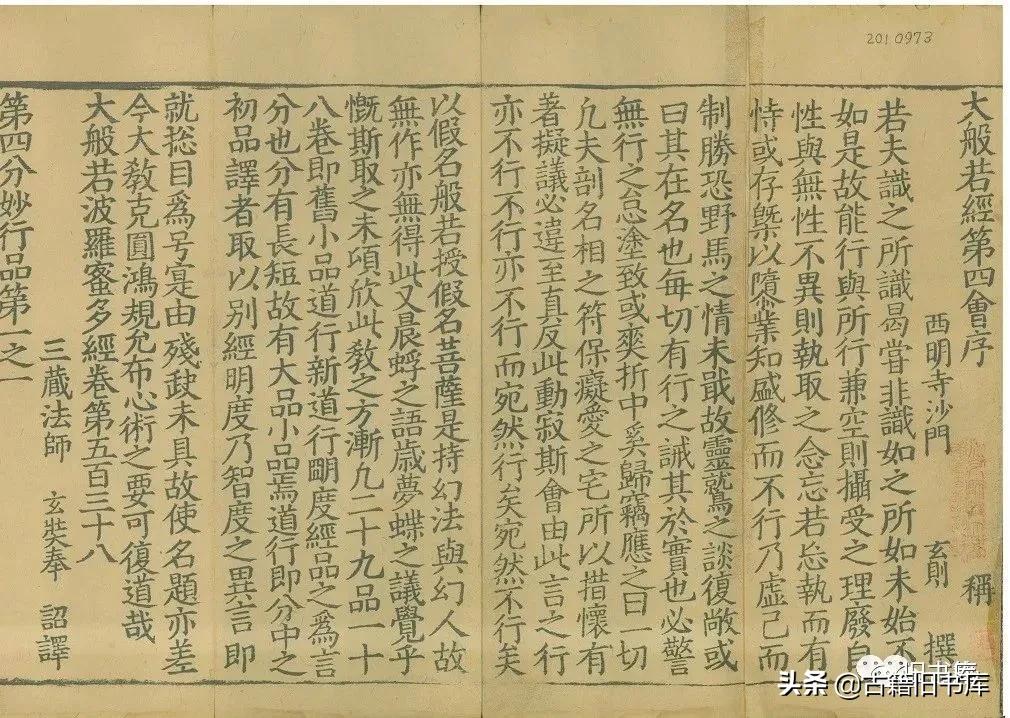 2010973
大般若經第四會序 稱
西明寺沙門 玄則 撰
若夫識之所識曷嘗非識如之所如未始不
如是故能行與所行兼空則攝受之理廢自
性與無性不異則執取之念忘若忩執而有
恃或存槩以隳業知盛修而不行乃虛己而
制勝恐野馬之情未戢故靈鷲之談復敞或
曰其在名也每切有行之誡其於實也必警
無行之怠塗致或爽折中奚歸竊應之曰一切
凢夫剖名相之符保癡愛之宅所以措懷有
著擬議必違至真反此動寂斯會由此言之行
亦不行不行亦不行而宛然行矣宛然不行矣
以假名般若授假名菩薩是持幻法與幻人故
無作亦無得此又晨蜉之語歲夢蝶之議覺乎
慨斯取之未項欣此敎之方漸凢二十九品一十
八卷即舊小品道行新道行明度經品之爲言
分也分有長短故有大品小品焉道行即分中之
初品譯者取以别經明度乃智度之異言即
就捴目爲号寔由殘缺未具故使名題亦差
今大敎克圓鴻規允布心術之要可復道哉
大般若波羅蜜多經卷第五百三十八
三蔵法師 玄奘奉 詔譯
第四分妙行品第一之一
旧书库
头条 @古籍旧书库